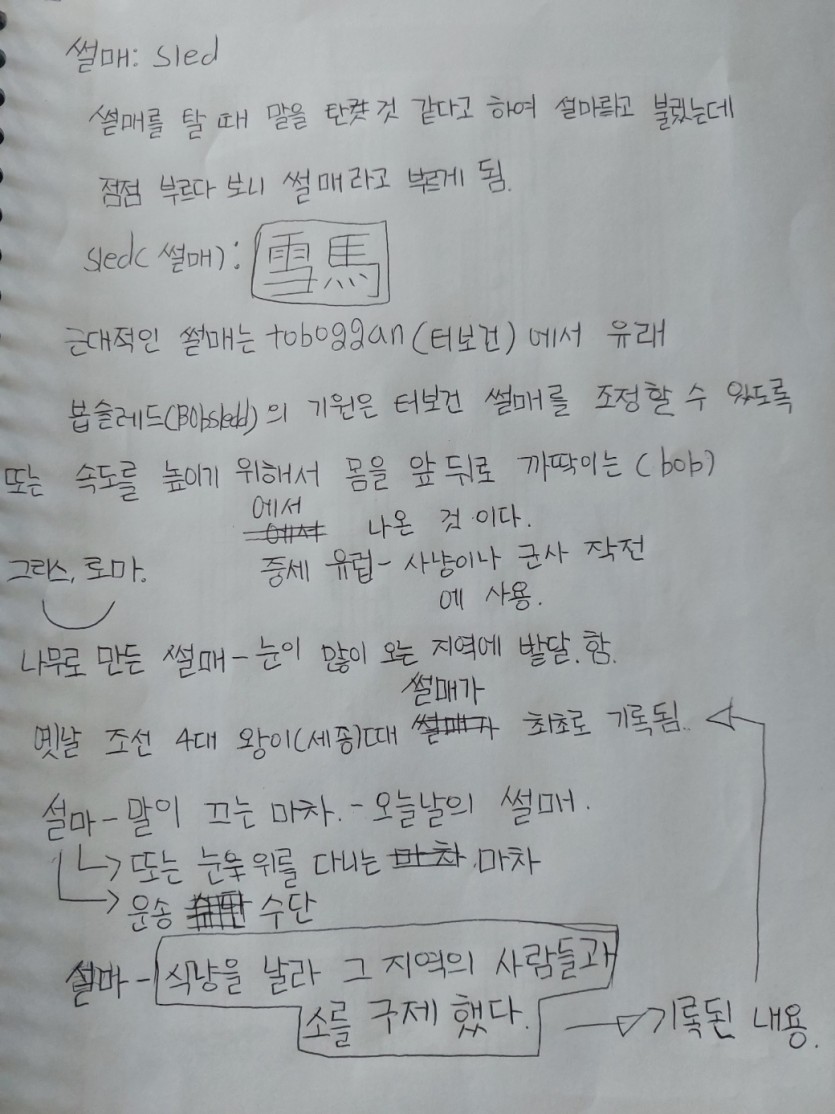 썰매: sled
썰매를 탈 때 말을 탄것 같다고 하여 설마라고 불렀는데
점점 부르다 보니 썰매라고 부르게 됨.
sled(썰매): 雪馬
근대적인 썰매는 toboggan(터보건)에서 유래
봅슬레드(Bobsledd)의 기원은 터보건 썰매를 조정할 수 있도록
또는 속도를 높이기 위해서 몸을 앞 뒤로 까딱이는 (bob)
에서 나온 것 이다.
그리스, 로마.
중세 유럽- 사냥이나 군사 작전
에 사용.
나무로 만든 썰매-눈이 많이 오는 지역에 발달.함.
썰매가
옛날 조선 4대 왕이(세종)때 썰매가 최초로 기록됨..
설마-말이 끄는 마차.-오늘날의 썰매.
또는 눈 위를 다니는 마차.마차
운송 수단
설마-식냥을 날라 그 지역의 사람들과
소를 구제 했다. 기록된 내용.